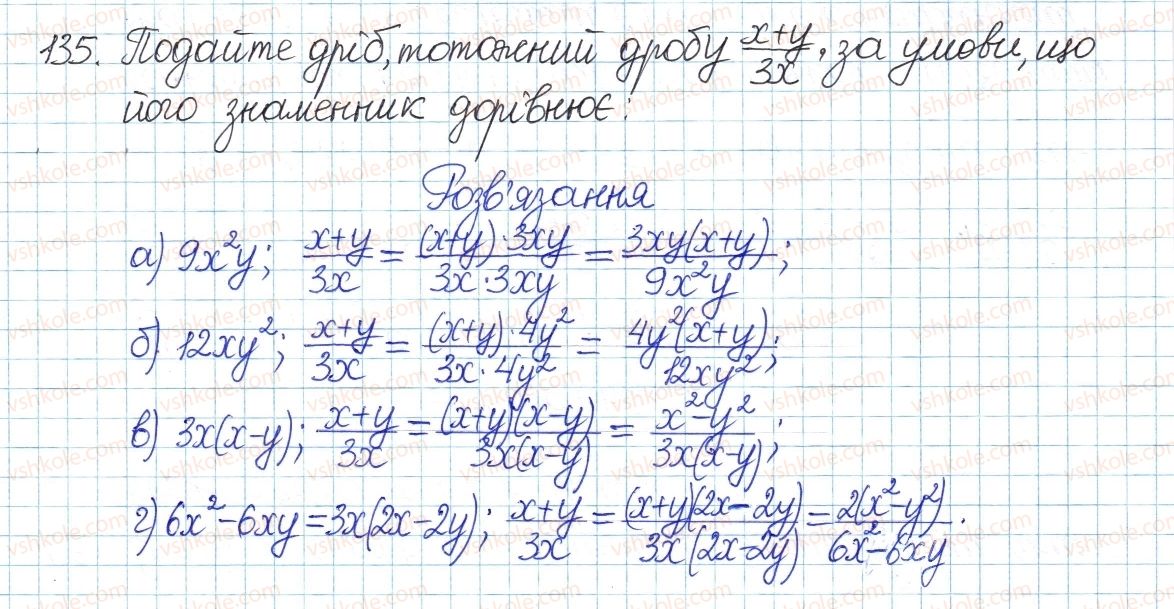 135. Подайте дріб, тотожний дробу (x+y)/(3x), за умови, що
його знаменник дорівнює:
Розв'язання
а) 9x²y; (x+y)/(3x) = ((x+y)·3xy)/(3x·3xy) = (3xy(x+y))/(9x²y);
б) 12xy²; (x+y)/(3x) = ((x+y)·4y²)/(3x·4y²) = (4y²(x+y))/(12xy²);
в) 3x(x-y); (x+y)/(3x) = ((x+y)(x-y))/(3x(x-y)) = (x²-y²)/(3x(x-y));
г) 6x²-6xy=3x(2x-2y); (x+y)/(3x) = ((x+y)(2x-2y))/(3x(2x-2y)) = (2(x²-y²))/(6x²-6xy).